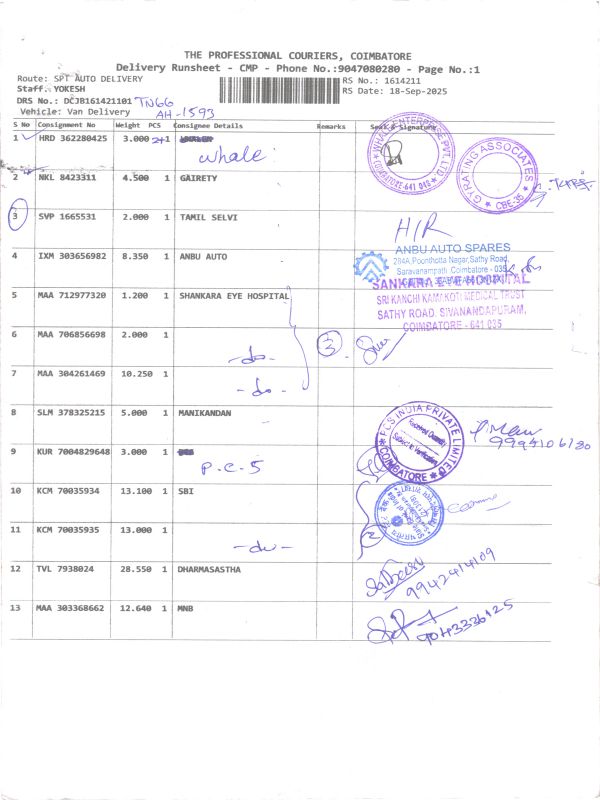 THE PROFESSIONAL COURIERS, COIMBATORE
Delivery Runsheet - CMP - Phone No.:9047080280 - Page No.:1
Route: SPT AUTO DELIVERY
RS No.: 1614211
Staff. YOKESH
RS Date: 18-Sep-2025
DRS No.: DCJB161421101 TN66
Vehicle: Van Delivery AH-1593
S No Consignment No Weight PCS Consignee Details Remarks Seal & Signature
1 HRD 362280425 3.000 2+1
whale
WHALE ENTERPRISE PVT. LTD. COIMBATORE-641 048
GYRATING ASSOCIATES CBE-35
2 NKL 8423311 4.500 1 GAIRETY
3 SVP 1665531 2.000 1 TAMIL SELVI
H/R
4 IXM 303656982 8.350 1 ANBU AUTO
ANBU AUTO SPARES
284A,Poonthotta Nagar,Sathy Road,
Saravanampatti,Coimbatore - 035
5 MAA 712977320 1.200 1 SHANKARA EYE HOSPITAL
SANKARA EYE HOSPITAL
SRI KANCHI KAMAKOTI MEDICAL TRUST
SATHY ROAD, SIVANANDAPURAM,
COIMBATORE - 641 035
6 MAA 706856698 2.000 1
-do-
3
7 MAA 304261469 10.250 1
-do-
8 SLM 378325215 5.000 1 MANIKANDAN
PCS INDIA PRIVATE LIMITED COIMBATORE
Received Quantity
Subject to Verification
9994106180
9 KUR 7004829648 3.000 1
P.C.S
10 KCM 70035934 13.100 1 SBI
11 KCM 70035935 13.000 1
-do-
12 TVL 7938024 28.550 1 DHARMASASTHA
9942414109
13 MAA 303368662 12.640 1 MNB
9043336125